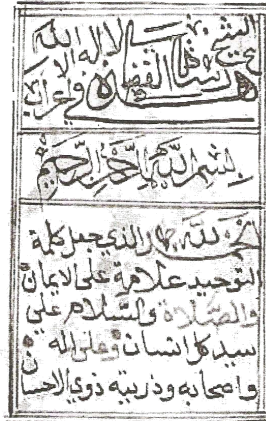 لا اله الا الله
في اعراب
بسم الله الرحمن الرحيم
الحمد لله الذي جعل كلمة
التوحيد علامة على الايمان
والصلاة والسلام على
سيد كل انسان وعلى اله
واصحابه وذريته ذوي الاحسان